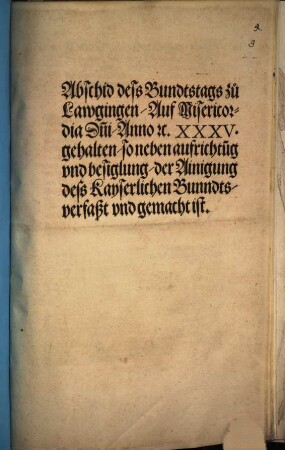 2.
3
Abschid dess Bundtstags zů
Lawgingen / Auf Misericor-
dia Dm̄ / Anno ꝛc. XXXV.
gehalten / so neben aufrichtũg
vnd besiglung / der Ainigung
dess Kayserlichen Bunndts /
verfaßt vnd gemacht ist.